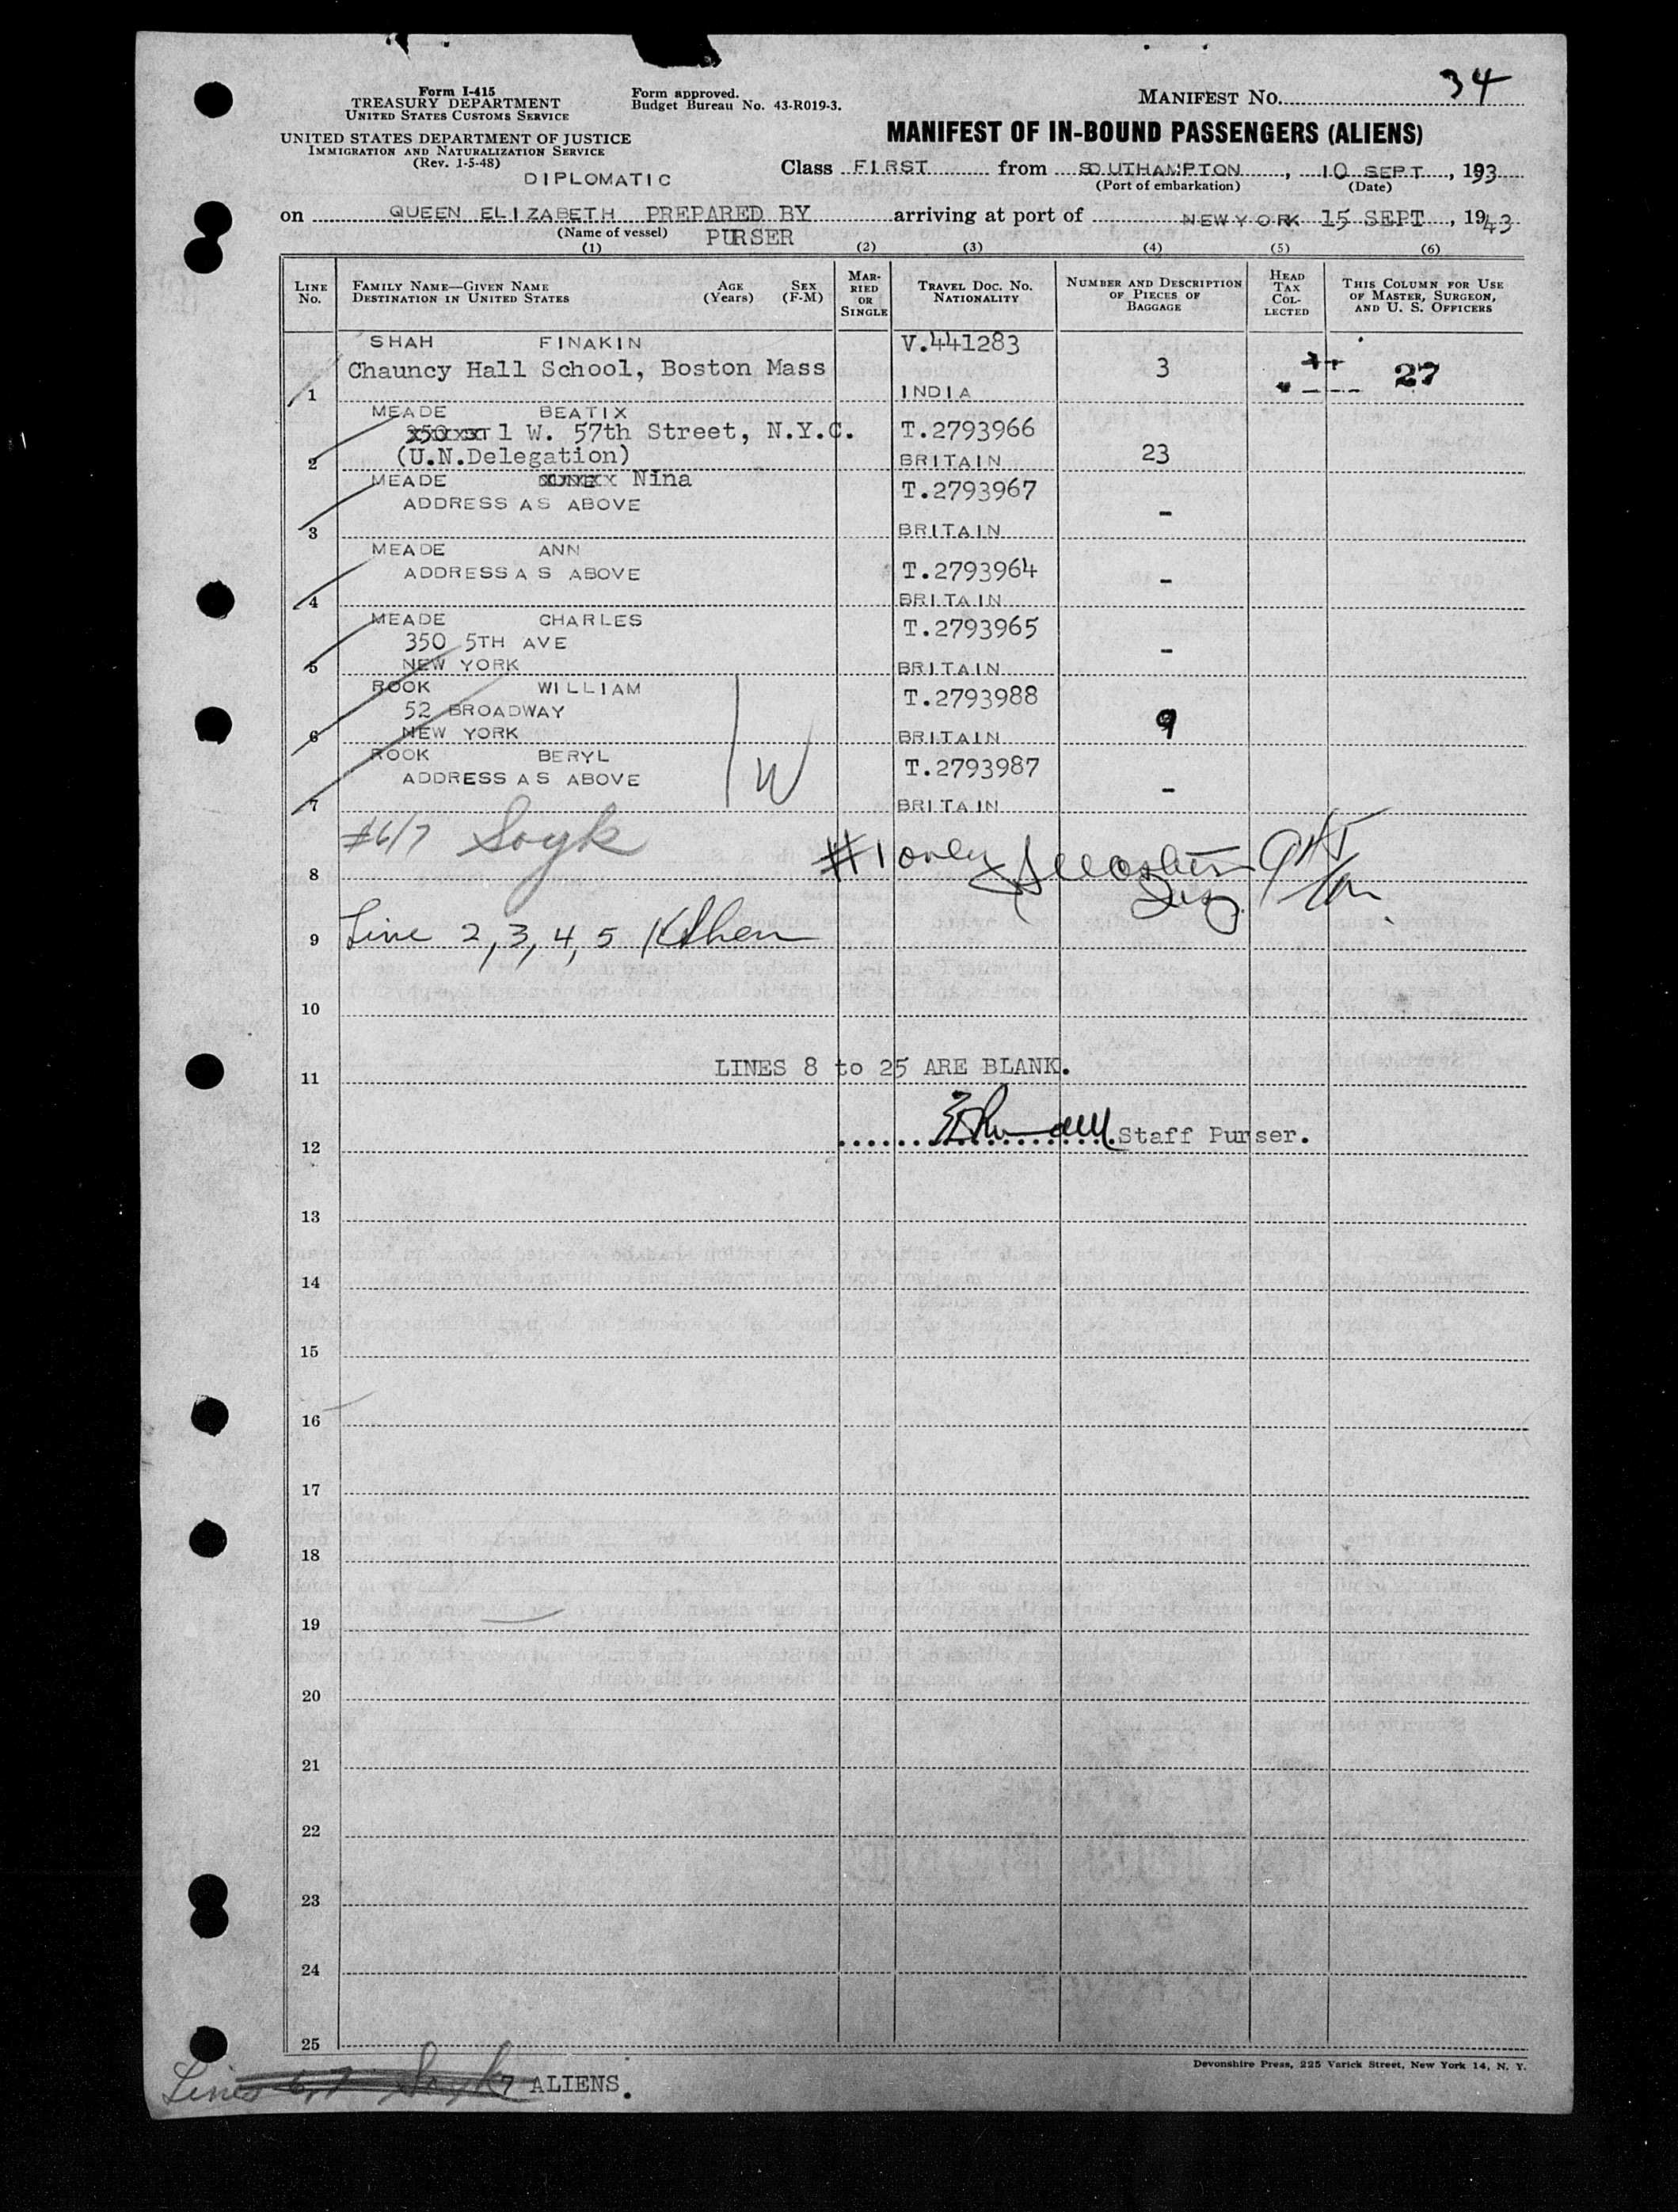 34
Form I-415
TREASURY DEPARTMENT
UNITED STATES CUSTOMS SERVICE
Form approved.
Budget Bureau No. 43-R019-3.
MANIFEST NO.
UNITED STATES DEPARTMENT OF JUSTICE
IMMIGRATION AND NATURALIZATION SERVICE
(Rev. 1-5-48)
MANIFEST OF IN-BOUND PASSENGERS (ALIENS)
DIPLOMATIC
Class FIRST from SOUTHAMPTON, 10 SEPT, 1993
(Port of embarkation) (Date)
on QUEEN ELIZABETH PREPARED BY arriving at port of NEW YORK 15 SEPT, 1943
(Name of vessel) PURSER
(1) (2) (3) (4) (5) (6)
LINE No. FAMILY NAME—GIVEN NAME DESTINATION IN UNITED STATES AGE (Years) SEX (F-M) MARRIED OR SINGLE TRAVEL DOC. NO. NATIONALITY NUMBER AND DESCRIPTION OF PIECES OF BAGGAGE HEAD TAX COLLECTED THIS COLUMN FOR USE OF MASTER, SURGEON, AND U. S. OFFICERS
SHAH FINAKIN V.441283
Chauncy Hall School, Boston Mass 3 27
1 INDIA
MEADE BEATIX
1 W. 57th Street, N.Y.C. T.2793966
2 (U.N.Delegation) BRITAIN 23
MEADE Nina T.2793967
ADDRESS AS ABOVE -
3 BRITAIN
MEADE ANN
ADDRESS AS ABOVE T.2793964 -
4 BRITAIN
MEADE CHARLES T.2793965
350 5TH AVE -
5 NEW YORK BRITAIN
ROOK WILLIAM T.2793988
52 BROADWAY 9
6 NEW YORK BRITAIN
ROOK BERYL T.2793987
ADDRESS AS ABOVE W -
7 BRITAIN
#6/7 Soyk #1 only
8
9 Line 2, 3, 4, 5
10
11 LINES 8 to 25 ARE BLANK.
12 Staff Purser.
13
14
15
16
17
18
19
20
21
22
23
24
25
Devonshire Press, 225 Varick Street, New York 14, N. Y.
Lines 6,7 Soyk 7 ALIENS.